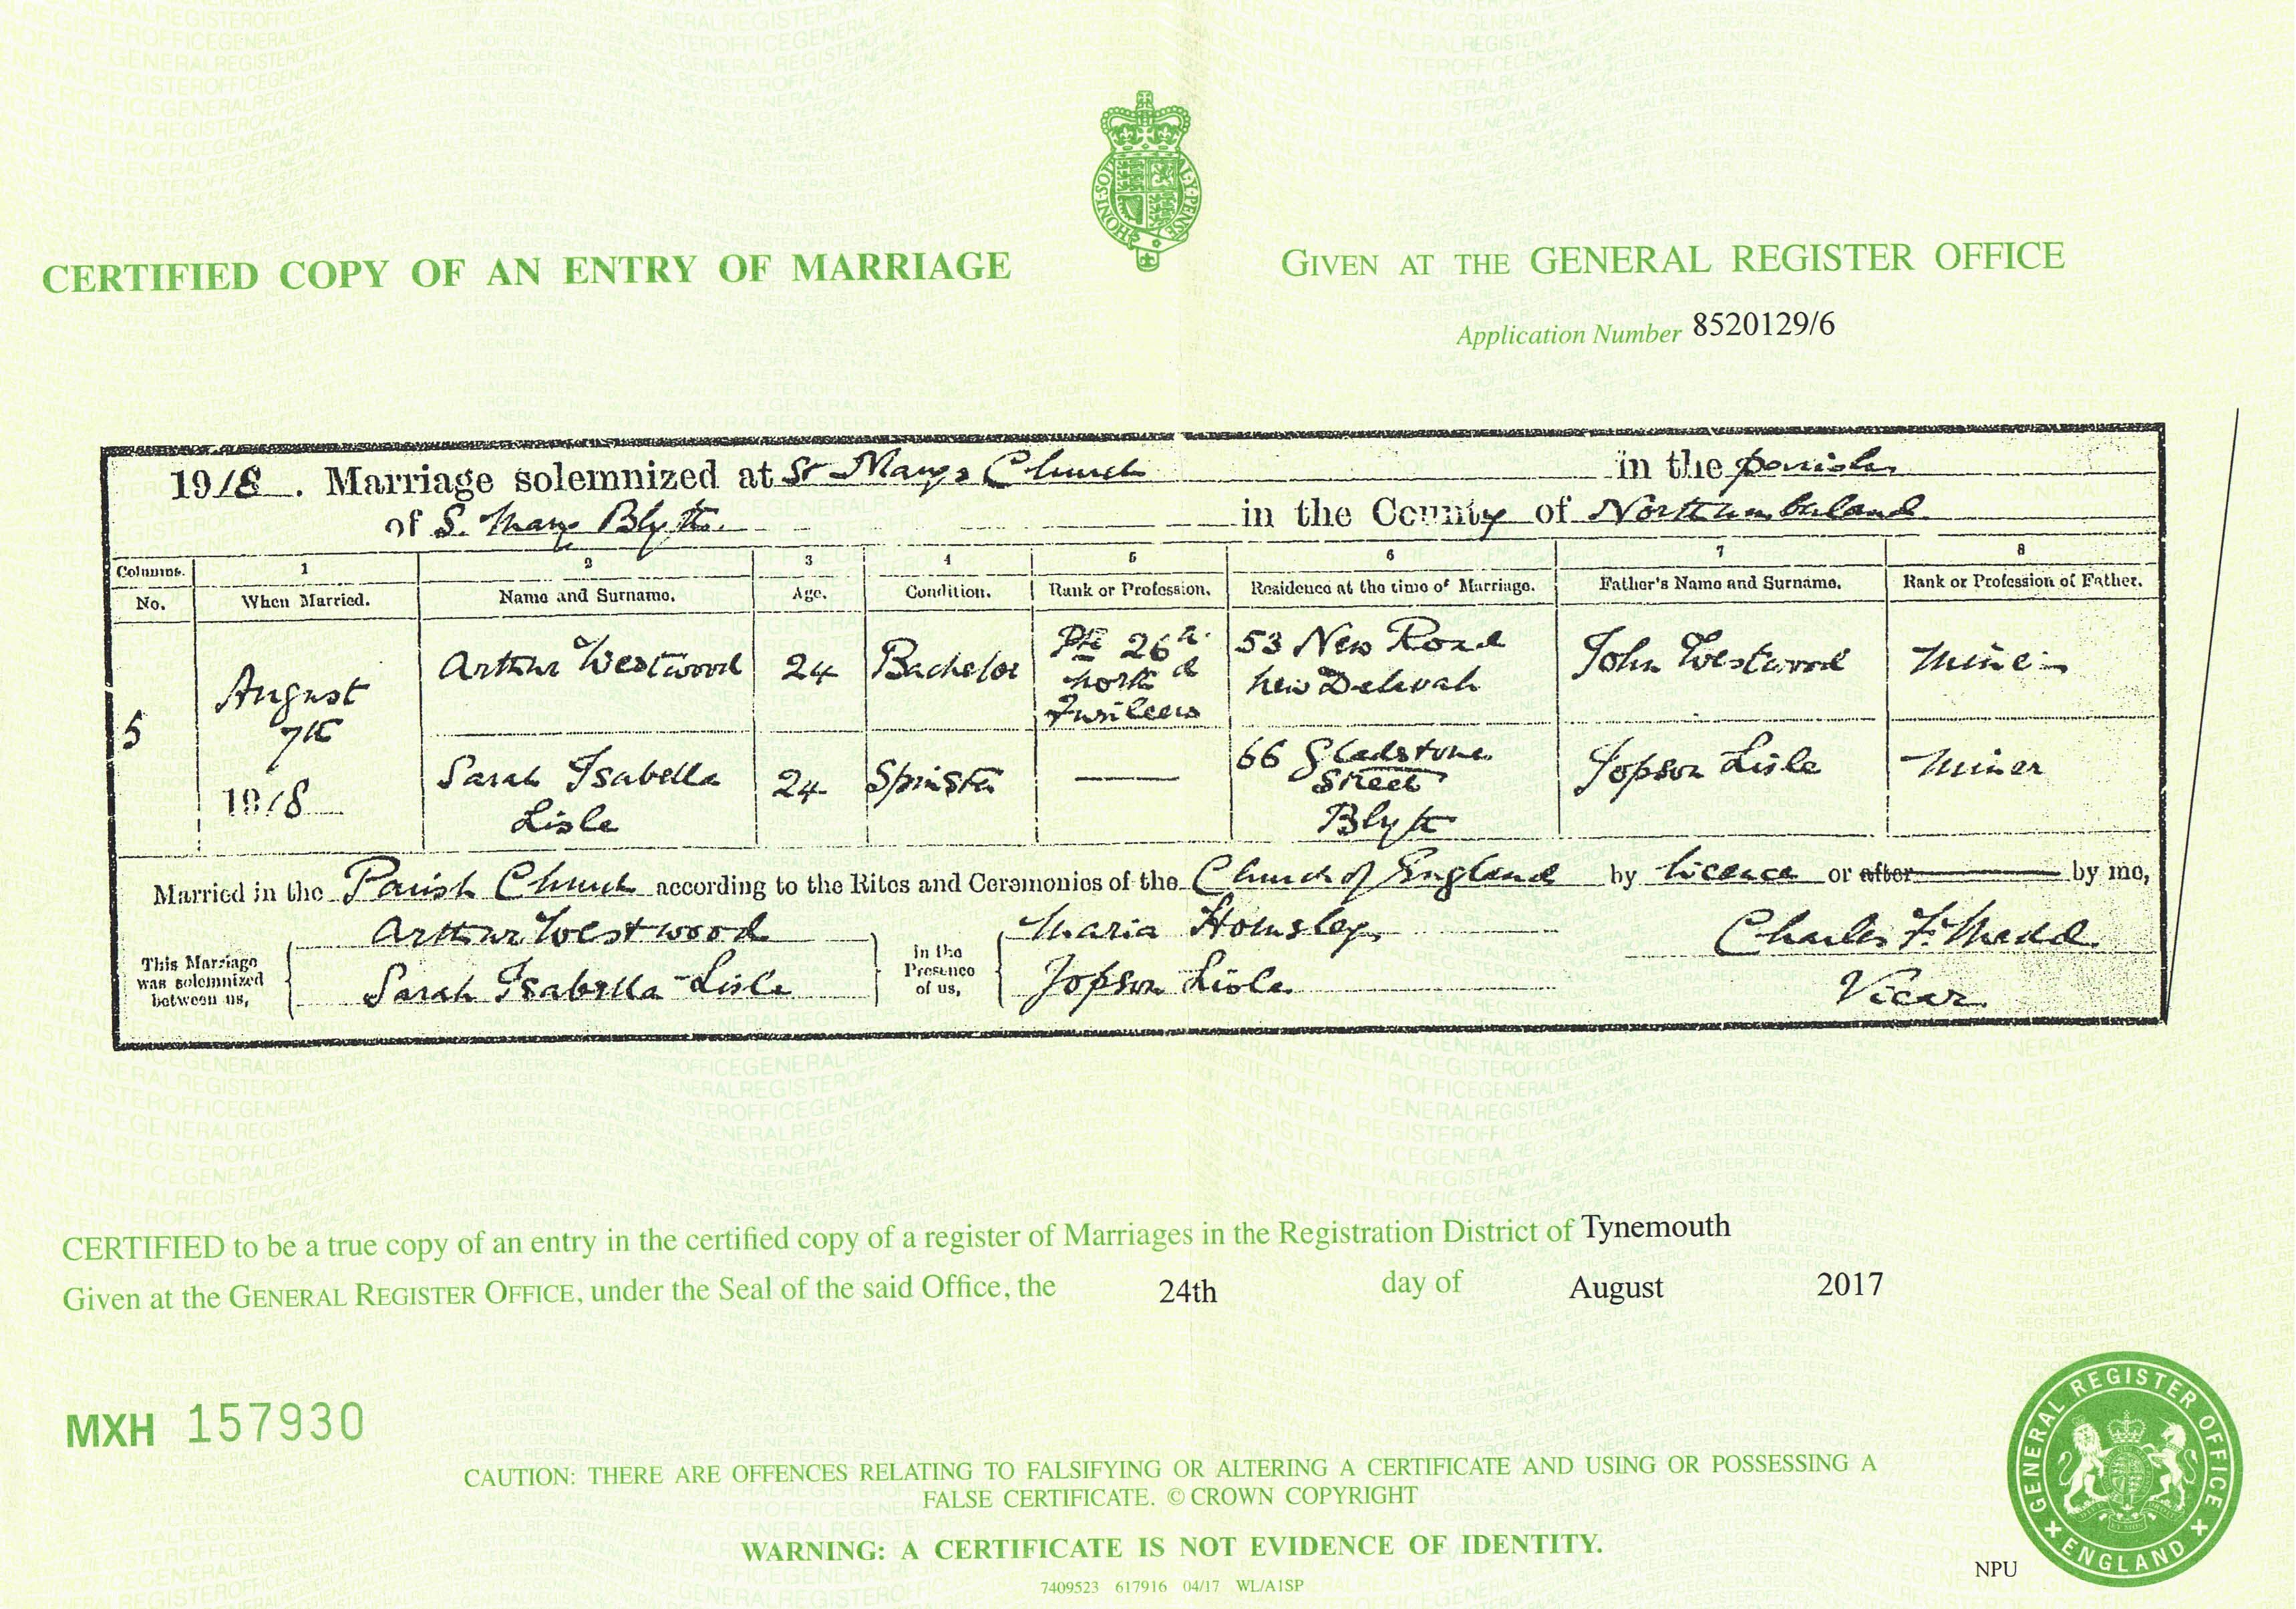 HONI·SOIT ·Y·PENSE
CERTIFIED COPY OF AN ENTRY OF MARRIAGE
GIVEN AT THE GENERAL REGISTER OFFICE
Application Number 8520129/6
1918. Marriage solemnized at St Marys Church in the parish
of S. Mary Blyth in the County of Northumberland
Columns. 1 2 3 4 5 6 7 8
No. When Married. Name and Surname. Age. Condition. Rank or Profession. Residence at the time of Marriage. Father's Name and Surname. Rank or Profession of Father.
5 August 7th 1918
Arthur Westwood 24 Bachelor Pte 26th North'd Fusileers 53 New Road New Delaval John Westwood Miner
Sarah Isabella Lisle 24 Spinster — 66 Gladstone Street Blyth Jopson Lisle Miner
Married in the Parish Church according to the Rites and Ceremonies of the Church of England by licence or after by me,
This Marriage was solemnized between us,
Arthur Westwood
Sarah Isabella Lisle
in the Presence of us,
Maria Hornsley
Jopson Lisle
Charles F.
Vicar
CERTIFIED to be a true copy of an entry in the certified copy of a register of Marriages in the Registration District of Tynemouth
Given at the GENERAL REGISTER OFFICE, under the Seal of the said Office, the 24th day of August 2017
MXH 157930
CAUTION: THERE ARE OFFENCES RELATING TO FALSIFYING OR ALTERING A CERTIFICATE AND USING OR POSSESSING A
FALSE CERTIFICATE. © CROWN COPYRIGHT
WARNING: A CERTIFICATE IS NOT EVIDENCE OF IDENTITY.
7409523 617916 04/17 WL/A1SP
NPU
GENERAL REGISTER OFFICE
ENGLAND